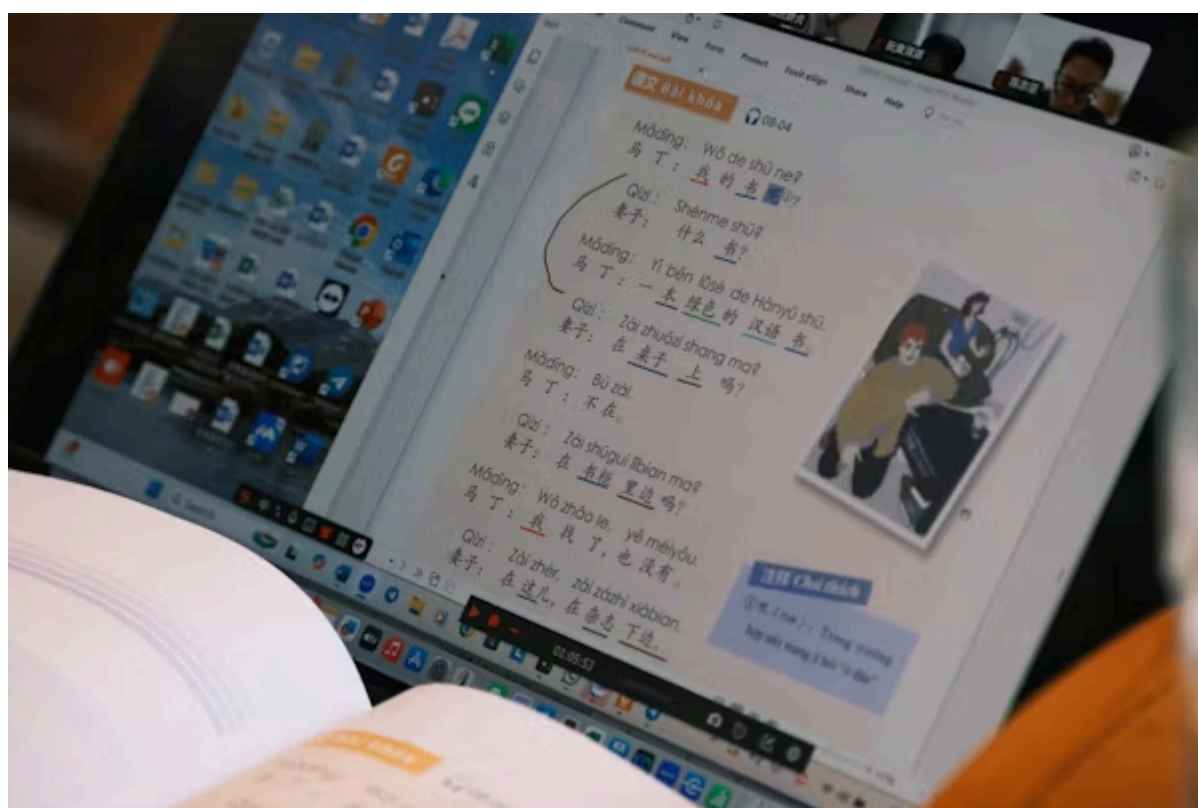 Comment View Form Protect Foxit eSign Share Help
课文 Bài khóa
08-04
Mǎdīng: Wǒ de shū ne?
马丁：我的书呢①?
Qīzi: Shénme shū?
妻子：什么书?
Mǎdīng: Yì běn lǜsè de Hànyǔ shū.
马丁：一本绿色的汉语书。
Qīzi: Zài zhuōzi shang ma?
妻子：在桌子上吗?
Mǎdīng: Bú zài.
马丁：不在。
Qīzi: Zài shūguì lǐbian ma?
妻子：在书柜里边吗?
Mǎdīng: Wǒ zhǎo le, yě méiyǒu.
马丁：我找了，也没有。
Qīzi: Zài zhèr, zài zázhì xiàbian.
妻子：在这儿，在杂志下边。
注释 Chú thích
①呢 (ne): Trong trường
hợp này mang ý hỏi "ở đâu"
01:05:53
Search
Bài khóa